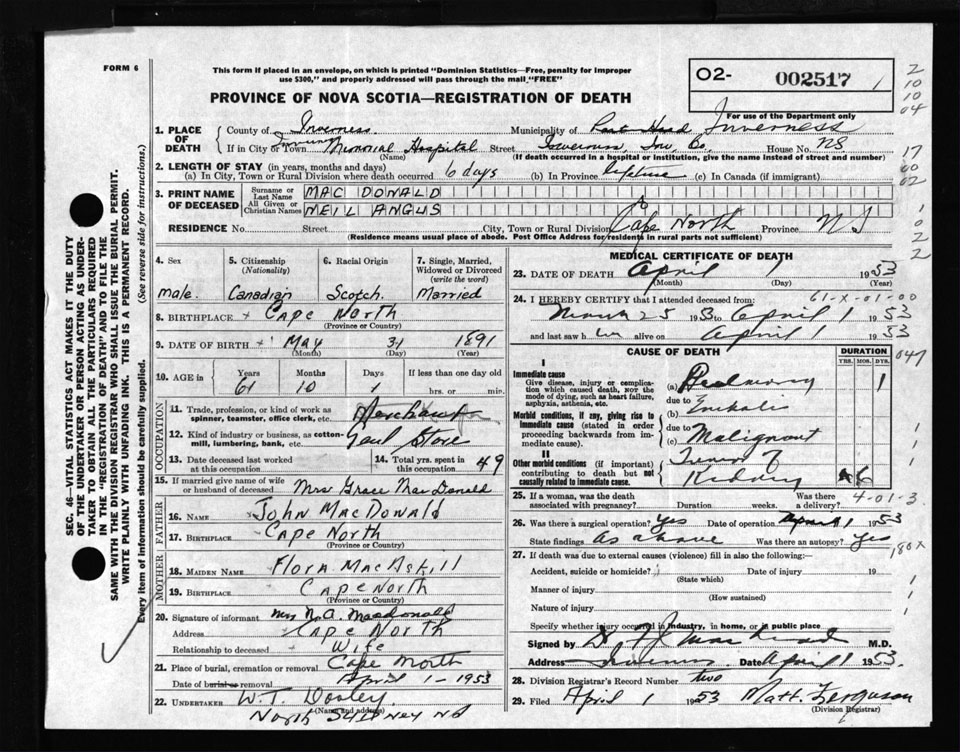 FORM 6
This form if placed in an envelope, on which is printed "Dominion Statistics—Free, penalty for improper
use $300," and properly addressed will pass through the mail "FREE"
O2- 002517 1
2
10
10
04
PROVINCE OF NOVA SCOTIA—REGISTRATION OF DEATH
For use of the Department only
1. PLACE OF DEATH
County of Inverness Municipality of Port Hood Inverness
If in City or Town Memorial Hospital Street Inverness, Inv. Co. House No. NS
(Name) (If death occurred in a hospital or institution, give the name instead of street and number)
17
2. LENGTH OF STAY (in years, months and days)
(a) In City, Town or Rural Division where death occurred 6 days (b) In Province lifetime (c) In Canada (if immigrant)
00
02
3. PRINT NAME OF DECEASED
Surname or Last Name MAC DONALD
All Given or Christian Names NEIL ANGUS
1
0
2
2
RESIDENCE No. Street City, Town or Rural Division Cape North Province NS
(Residence means usual place of abode. Post Office Address for residents in rural parts not sufficient)
4. Sex
male.
5. Citizenship (Nationality)
Canadian
6. Racial Origin
Scotch.
7. Single, Married, Widowed or Divorced (write the word)
Married
8. BIRTHPLACE Cape North
(Province or Country)
9. DATE OF BIRTH May 31 1891
(Month) (Day) (Year)
10. AGE in
Years Months Days If less than one day old
61 10 1 hrs. or min.
OCCUPATION
11. Trade, profession, or kind of work as spinner, teamster, office clerk, etc. Merchant
12. Kind of industry or business, as cotton-mill, lumbering, bank, etc. Store
13. Date deceased last worked at this occupation
14. Total yrs. spent in this occupation 49
15. If married give name of wife or husband of deceased Mrs Grace MacDonald
FATHER
16. NAME John MacDonald
17. BIRTHPLACE Cape North
(Province or Country)
MOTHER
18. MAIDEN NAME Flora MacAskill
19. BIRTHPLACE Cape North
(Province or Country)
20. Signature of informant Mrs N.A. Macdonald
Address Cape North
Relationship to deceased Wife
21. Place of burial, cremation or removal Cape North
Date of burial or removal April 1-1953
22. UNDERTAKER W.T. Dooley
(Name and address)
North Sydney NS
MEDICAL CERTIFICATE OF DEATH
23. DATE OF DEATH April 1 1953
(Month) (Day) (Year)
61-X-01-00
24. I HEREBY CERTIFY that I attended deceased from:
March 25 1953 to April 1 1953
and last saw h im alive on April 1 1953
CAUSE OF DEATH
DURATION
YRS. MOS. DYS.
047
I
Immediate cause
Give disease, injury or complication which caused death, NOT the mode of dying, such as heart failure, asphyxia, asthenia, etc.
(a) Pulmonary 1
due to
Morbid conditions, if any, giving rise to immediate cause (stated in order proceeding backwards from immediate cause).
(b) Embolis
due to
(c) Malignant
II
Other morbid conditions (if important) contributing to death but not causally related to immediate cause.
Tumor of
Kidney 6
1
1
25. If a woman, was the death associated with pregnancy? Duration weeks. Was there a delivery?
4-01-3
26. Was there a surgical operation? Yes Date of operation April 1 1953
State findings As above Was there an autopsy? Yes
180X
27. If death was due to external causes (violence) fill in also the following:—
Accident, suicide or homicide? Date of injury 19
(State which)
Manner of injury
(How sustained)
Nature of injury
Specify whether injury occurred in industry, in home, or in public place
1
1
Signed by M.D.
Address Inverness Date April 1 1953.
28. Division Registrar's Record Number two
29. Filed April 1 1953 Matt. Ferguson
(Division Registrar)
SEC. 46—VITAL STATISTICS ACT MAKES IT THE DUTY
OF THE UNDERTAKER OR PERSON ACTING AS UNDER-
TAKER TO OBTAIN ALL THE PARTICULARS REQUIRED
IN THE "REGISTRATION OF DEATH" AND TO FILE THE
SAME WITH THE DIVISION REGISTRAR WHO SHALL ISSUE THE BURIAL PERMIT.
WRITE PLAINLY WITH UNFADING INK. THIS IS A PERMANENT RECORD.
Every item of information should be carefully supplied. (See reverse side for instructions.)